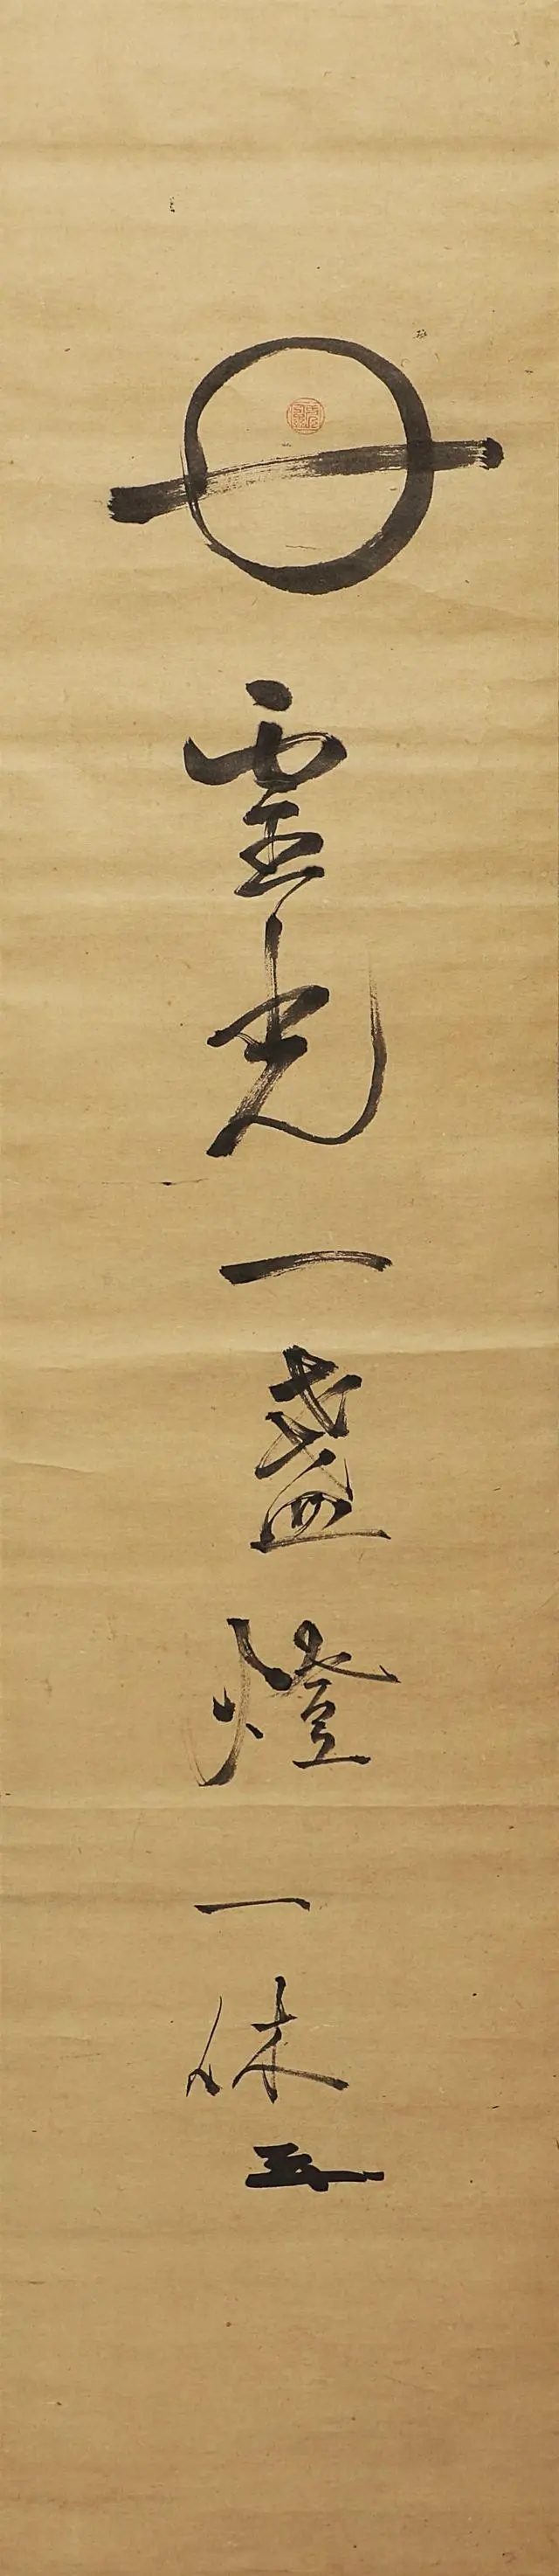 靈光一盞燈一休